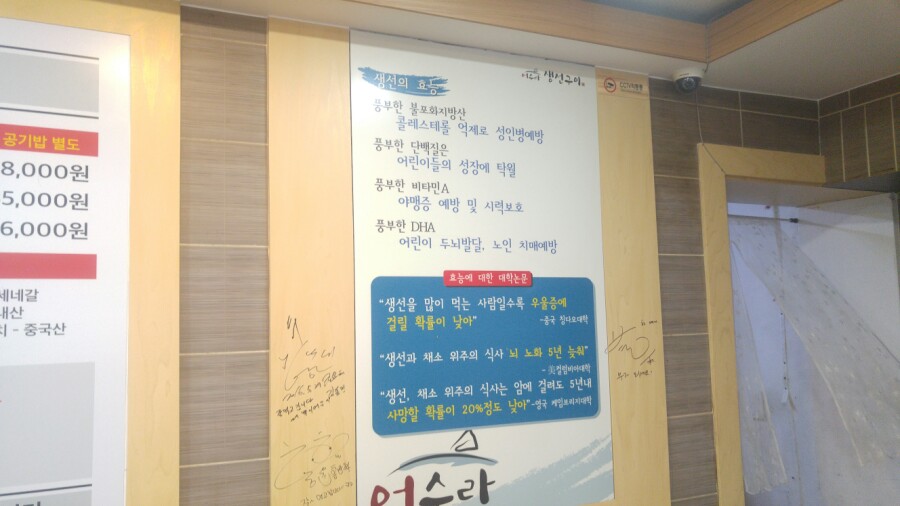 공기밥 별도
8,000원
5,000원
6,000원
세네갈
내산
치 - 중국산
생선의 효능
어수라 생선구이
풍부한 불포화지방산
콜레스테롤 억제로 성인병예방
풍부한 단백질은
어린이들의 성장에 탁월
풍부한 비타민A
야맹증 예방 및 시력보호
풍부한 DHA
어린이 두뇌발달, 노인 치매예방
효능에 대한 대학논문
"생선을 많이 먹는 사람일수록 우울증에
걸릴 확률이 낮아" -중국 칭다오대학
"생선과 채소 위주의 식사 뇌 노화 5년 늦춰"
- 美컬럼비아대학
"생선, 채소 위주의 식사는 암에 걸려도 5년내
사망할 확률이 20%정도 낮아" -영국 케임브리지대학
어수라
CCTV작동중